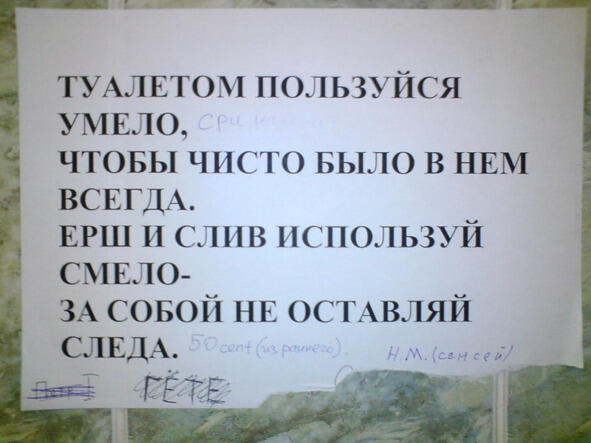 ТУАЛЕТОМ ПОЛЬЗУЙСЯ
УМЕЛО, сри
ЧТОБЫ ЧИСТО БЫЛО В НЕМ
ВСЕГДА.
ЕРШ И СЛИВ ИСПОЛЬЗУЙ
СМЕЛО-
ЗА СОБОЙ НЕ ОСТАВЛЯЙ
СЛЕДА. 50 cent (из раннего). Н.М. (сенсей)
ГЁТЕ